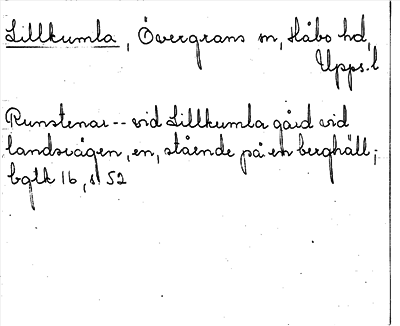 Lillkumla, Övergrans sn, Håbo hd,
Upps. l
Runstenar -- vid Lillkumla gård vid
landsvägen, en, stående på en berghäll;
bgtk 16, s 52